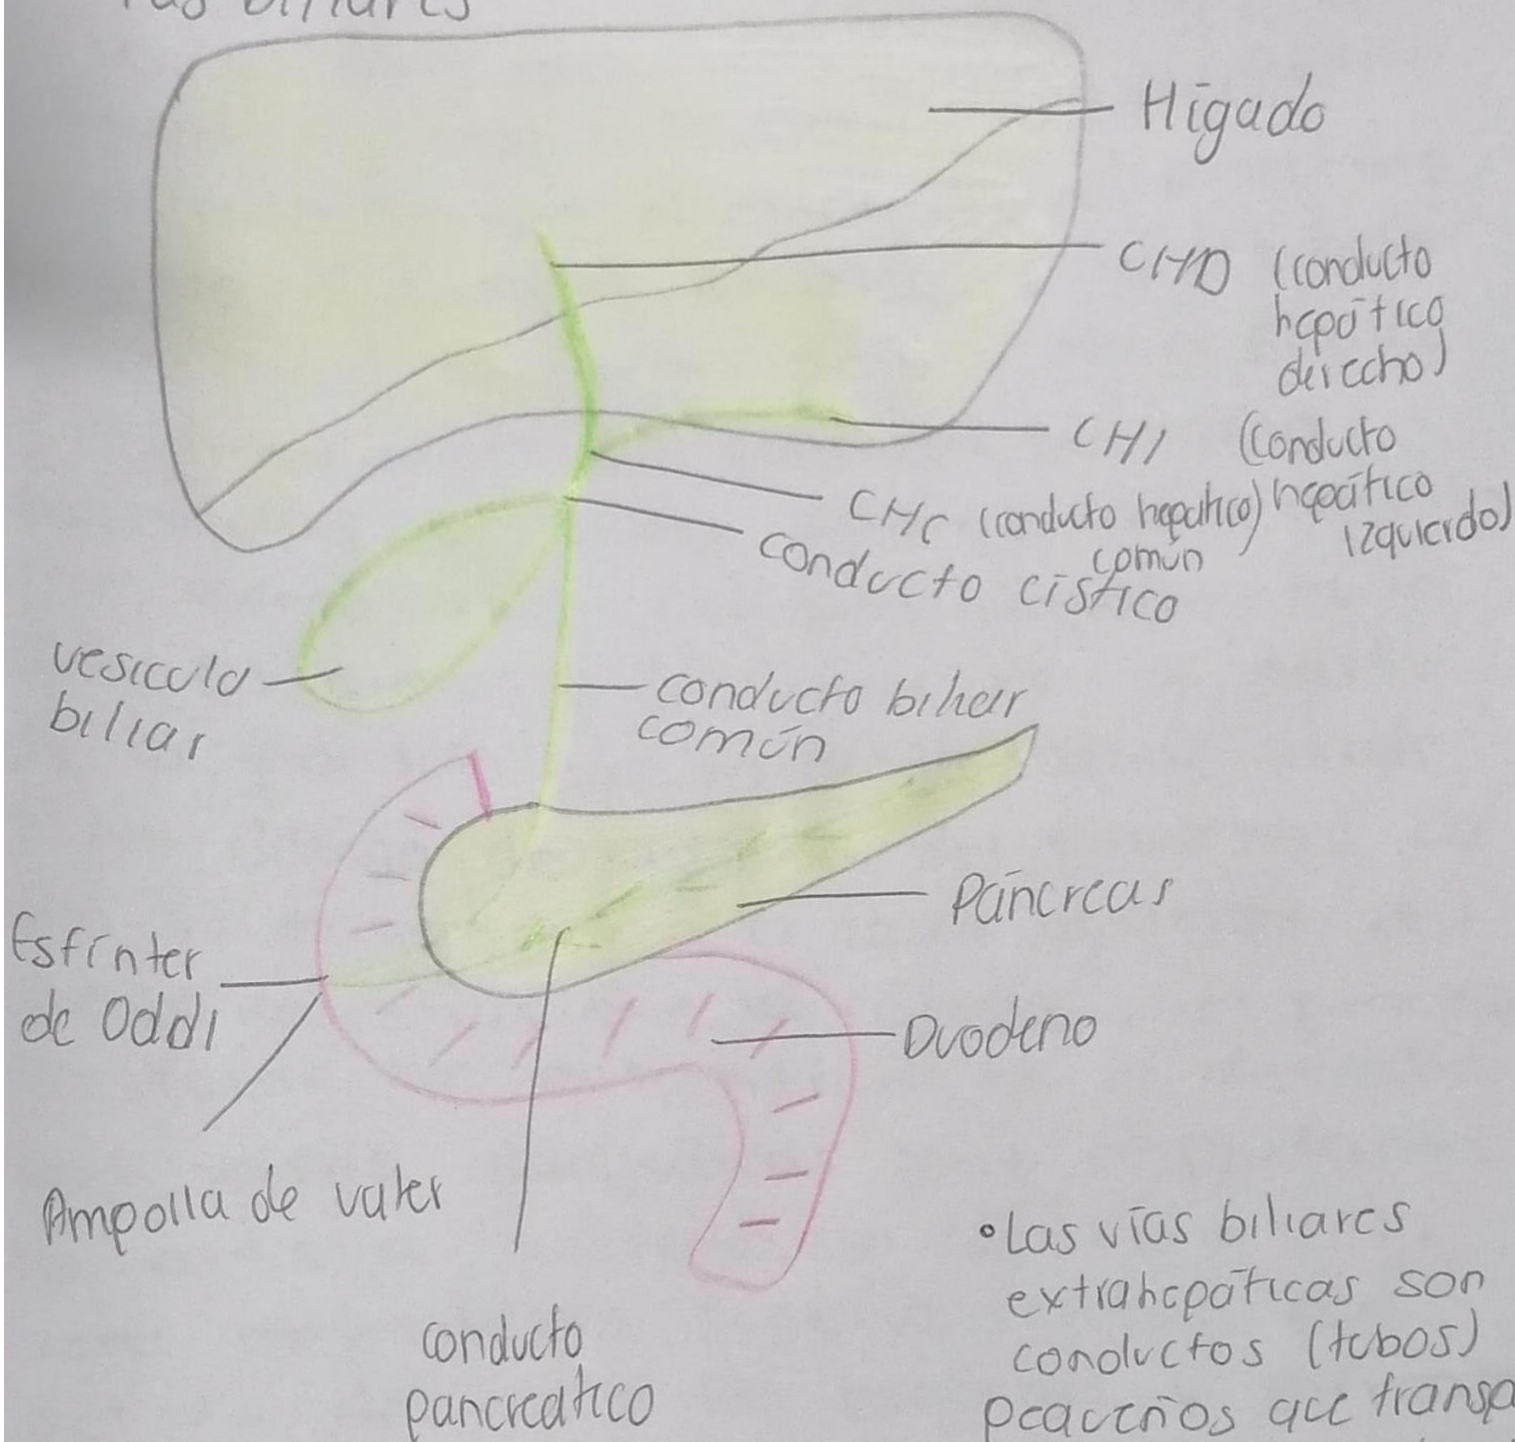 biliares
Hígado
CHD (conducto
hepático
derecho)
CHI (conducto
hepático
izquierdo)
CHC (conducto hepático)
común
conducto cístico
vesicula
biliar
conducto biliar
común
Páncreas
Esfínter
de Oddi
Duodeno
Ampolla de vater
conducto
pancreatico
•Las vías biliares
extrahepáticas son
conductos (tubos)
pequeños que transpo